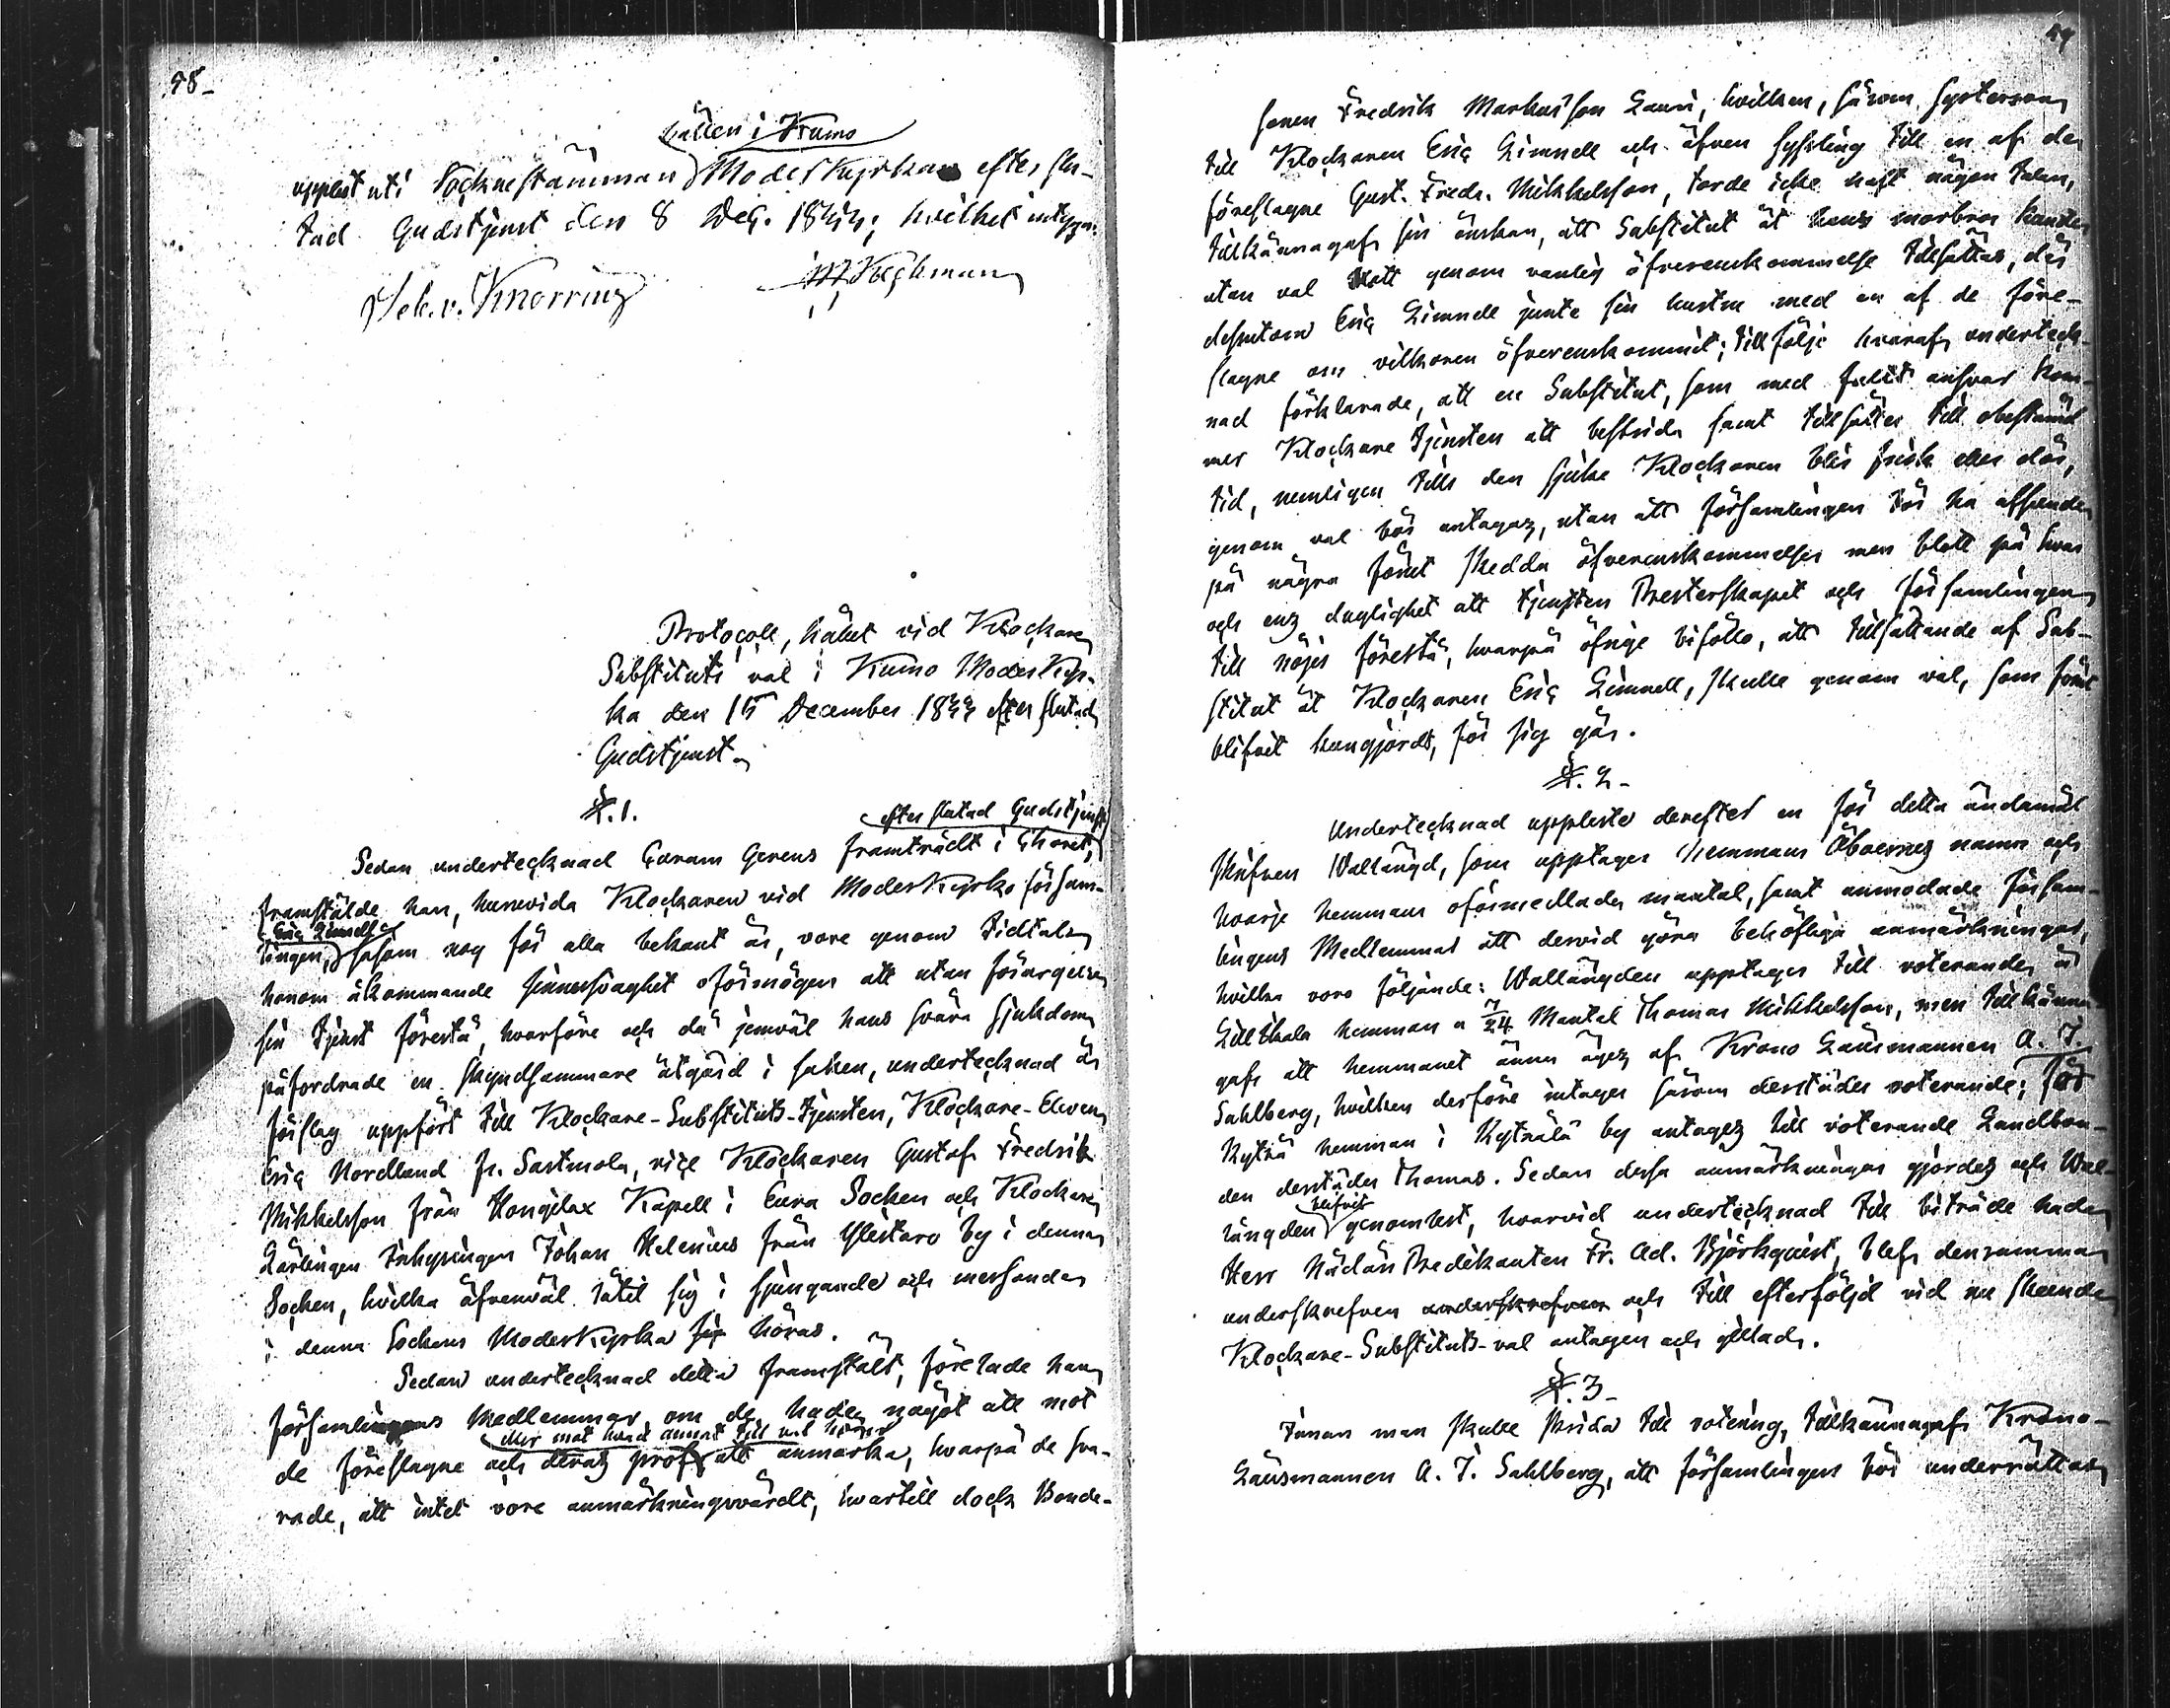 58_
hållen i Kumo
uppläst uti Socknestämman Moderkyrkan efter slu-
tad Gudstjenst den 8 Dec. 1844; hvilket intyga:
Joh. v. Knorring
Protocoll, hållet vid Klockare
Substituts val i Kumo Moder Kyr-
ka den 15 December 1844 efter slutad
Gudstjenst.
§. 1.
efter slutad Gudstjenst
Sedan undertecknad Coram Gerens framträdt i Choret,
framstälde han, hurruvida Klockaren vid ModerKyrko försam-
Eric Limnell
lingen, såsom nog för alla bekant är, vore genom tidtals
honom åkommande sinnessvaghet oförmögen att utan förargelse
sin tjenst förestå, hvarföre och då jemväl hans svåra sjukdom
påfordrade en skyndsammare åtgärd i saken, undertecknad å
förslag uppfört till Klockare-Substituts-tjensten, Klockare-Eleven
Eric Nordlund fr. Sastmola, vice Klockaren Gustaf Fredrik
Mikkelsson från Hongilax Kapell i Eura Socken och Klockare
Lärlingen Inhysingen Johan Helenius från Ylistaro by i denna
Socken, hvilka äfvenväl låtit sig i sjungande och messande
i denna Sockens ModerKyrka sig höras.
Sedan undertecknad detta framstält, förelade han
församlingens Medlemmar, om de hade något att mot
eller mot hvad annat till val hörer
de föreslagne och deras prof att anmärka, hvarpå de sva-
rade, att intet vore anmärkningsvärdt, hvartill dock Bonde-
59
sonen Fredrik Markusson Lauri, hvilken, såsom systerson
till Klockaren Eric Limnell och äfven syssling till en af de
föreslagne Gust. Fredr. Mikkelsson, torde icke haft någon talan,
tillkännagaf sin önskan, att Substitut åt hans morbror kunde
utan val blott genom vanlig öfverenskommelse tillsättas, då
dessutom Eric Limnell jemte sin hustru med en af de före-
slagne om vilkoren öfverenskommit; till följe hvaraf underteck-
nad förklarade, att en Substitut, som med fullt ansvar kom-
mer Klockare tjensten att bestrida samt tillsättes till obestämd
tid, nemligen tills den sjuke Klockaren blir frisk eller dör,
genom val bör antagas, utan att församlingen bör ha afseende
på några förut skedda öfverenskommelser men blott på hvar
och ens duglighet att tjensten Presterskapet och församlingen
till nöjes förestå, hvarpå öfrige biföllo, att tillsättande af Sub-
stitut åt Klockaren Eric Limnell, skulle genom val, som förut
blifvit kungjordt, för sig gå.
§. 2.
Undertecknad uppleste derefter en för detta ändamål
skrifven Vallängd, som upptager hemmans Åboernes namn och
hvarje hemmans oförmedlade mantal, samt anmodade försam-
lingens Medlemmar att dervid göra behöfliga anmärkningar,
hvilka voro följande: Vallängden upptager till voterande å
Lill Ikala hemman a 7/24 Mantal Thomas Mikkelsson, men tillkänna
gafs att hemmanet ännu äges af Krono Länsmannen A. J.
Sahlberg, hvilken derföre intages såsom derstädes voterande; för
Kyträ hemman i Kyträlä by antages till voterande Landbon-
den derstädes Thomas. Sedan dessa anmärkningar gjordes och Val-
blifvit
längden genomläst, hvarvid undertecknad till biträde hade
Herr Nådårs Predikanten Fr. Ad. Björkqvist, blef densamma
underskrefven underskrefven och till efterföljd vid nu skeende
Klockare-Substituts-val antagen och gillad.
§. 3.
Innan man skulle skrida till votering, tillkännagaf Krono-
Länsmannen A. J. Sahlberg, att församlingen bör underrättas